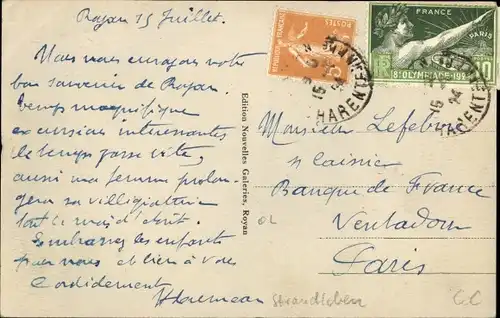 Royan 15 Juillet.
Nous vous envoyons votre
bon souvenir de Royan.
Temps magnifique
excursions interessantes
le temps passe vite,
aussi ma femme prolon-
gera sa villégiature
tout le mois d'Août.
Embrassez les enfants
pour nous et bien à vous
Cordialement
Edition Nouvelles Galeries, Royan
POSTES
REPUBLIQUE FRANÇAISE
FRANCE
PARIS
8e OLYMPIADE 1924
10
15
24
CHARENTE
CHARENTE
Monsieur Lefebvre
Banque de France
Ventadour
Paris
Strandleben